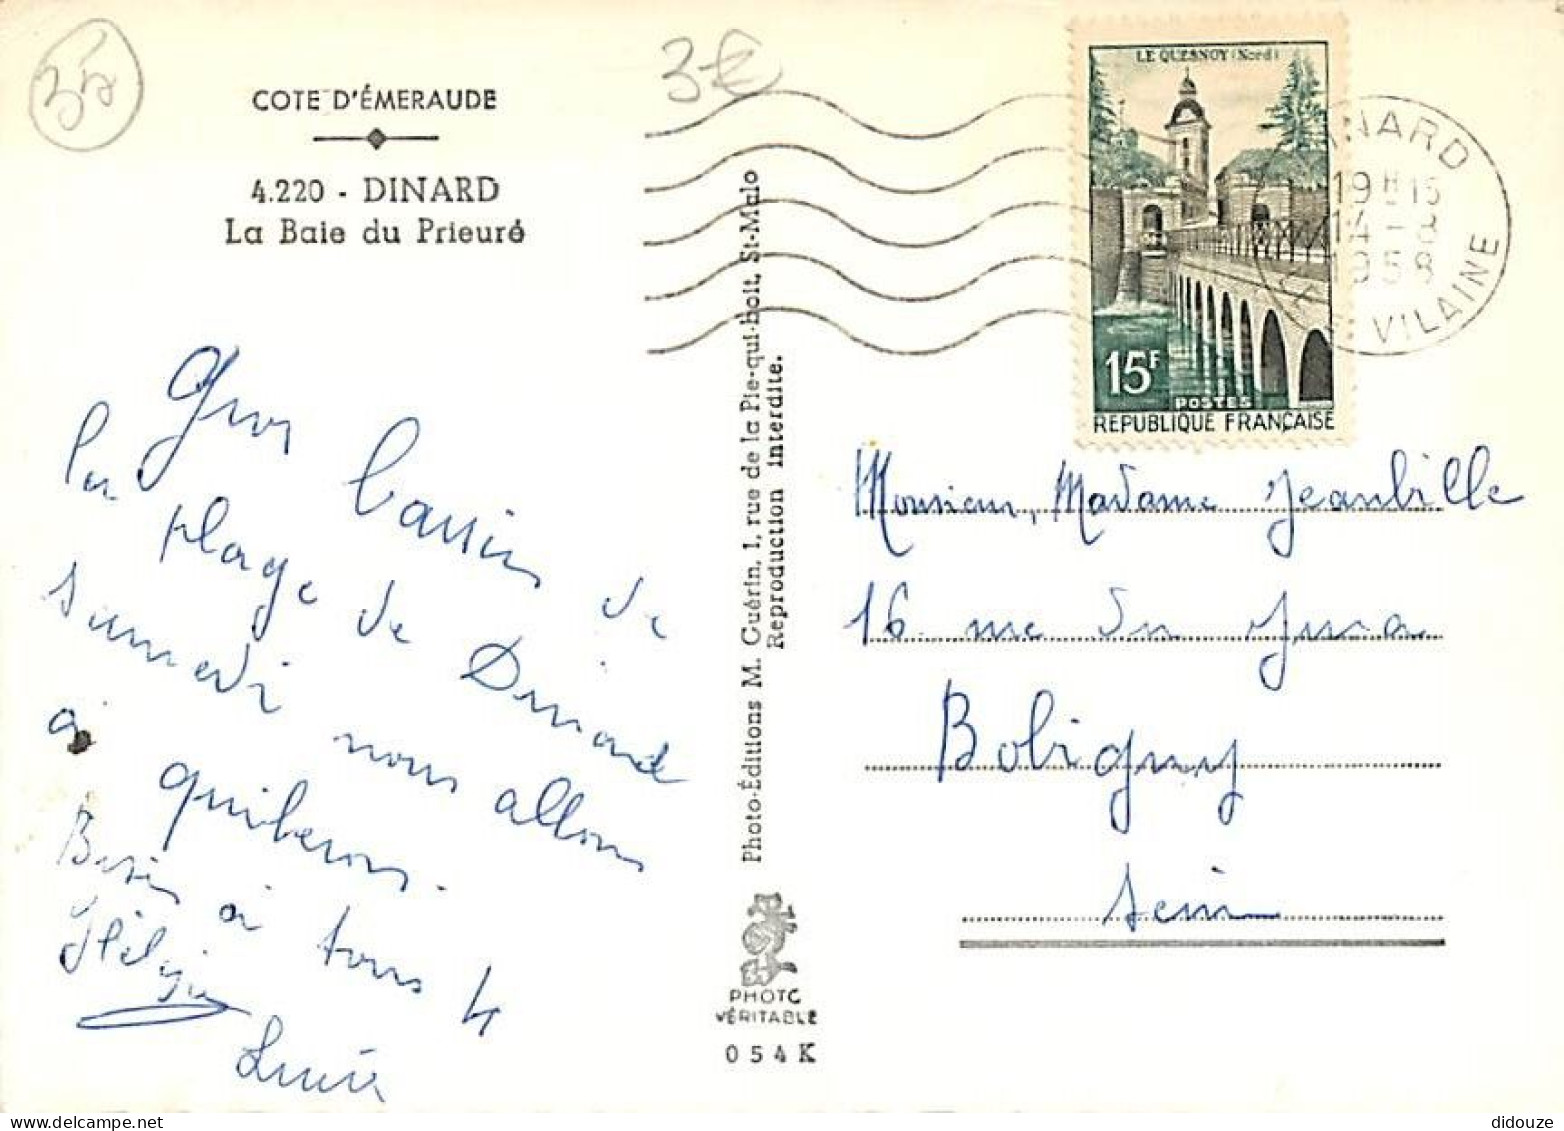 35
3€
COTE D'ÉMERAUDE
4.220 - DINARD
La Baie du Prieuré
LE QUESNOY (Nord)
15F
POSTES
REPUBLIQUE FRANÇAISE
DINARD
19H15
14-8
1958
VILAINE
Gros baisers de
la plage de Dinard
samedi nous allons
à quiberon.
Baisers à tous 4
Lucie
Photo-Éditions M. Guérin, 1, rue de la Pie-qui-boit, St-Malo
Reproduction interdite.
PHOTO
VÉRITABLE
054K
Monsieur, Madame Jeanbille
16 rue du Jura
Bobigny
Seine
didouze